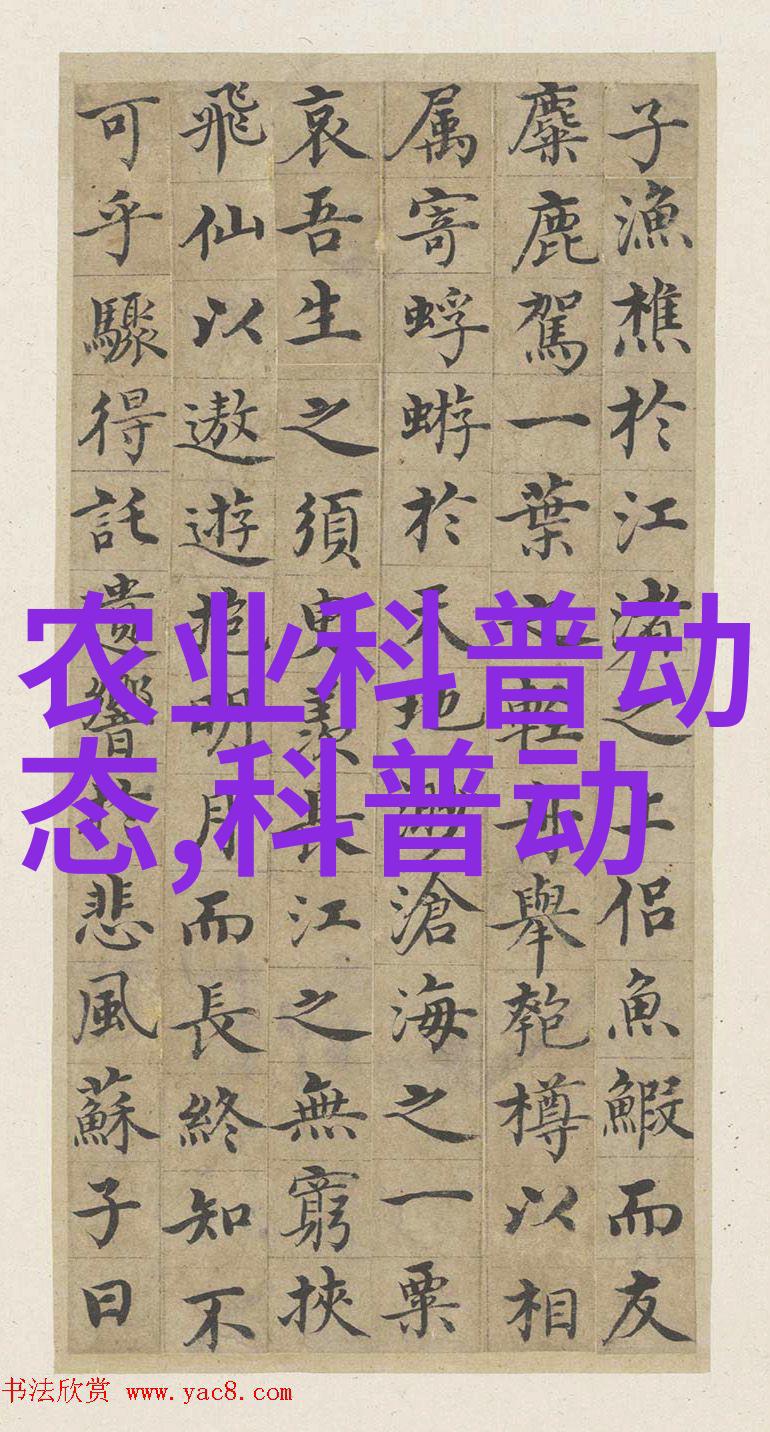 子漁樵於江渚之上侶魚鰕而友
麋鹿駕一葉之輕舟舉匏樽以相
属寄蜉蝣於天地渺滄海之一粟
哀吾生之須臾羨長江之無窮挾
飛仙以遨遊抱明月而長終知不
可乎驟得託遺響於悲風蘇子曰
农业科普动
态,科普动
书法欣赏 www.yac8.com